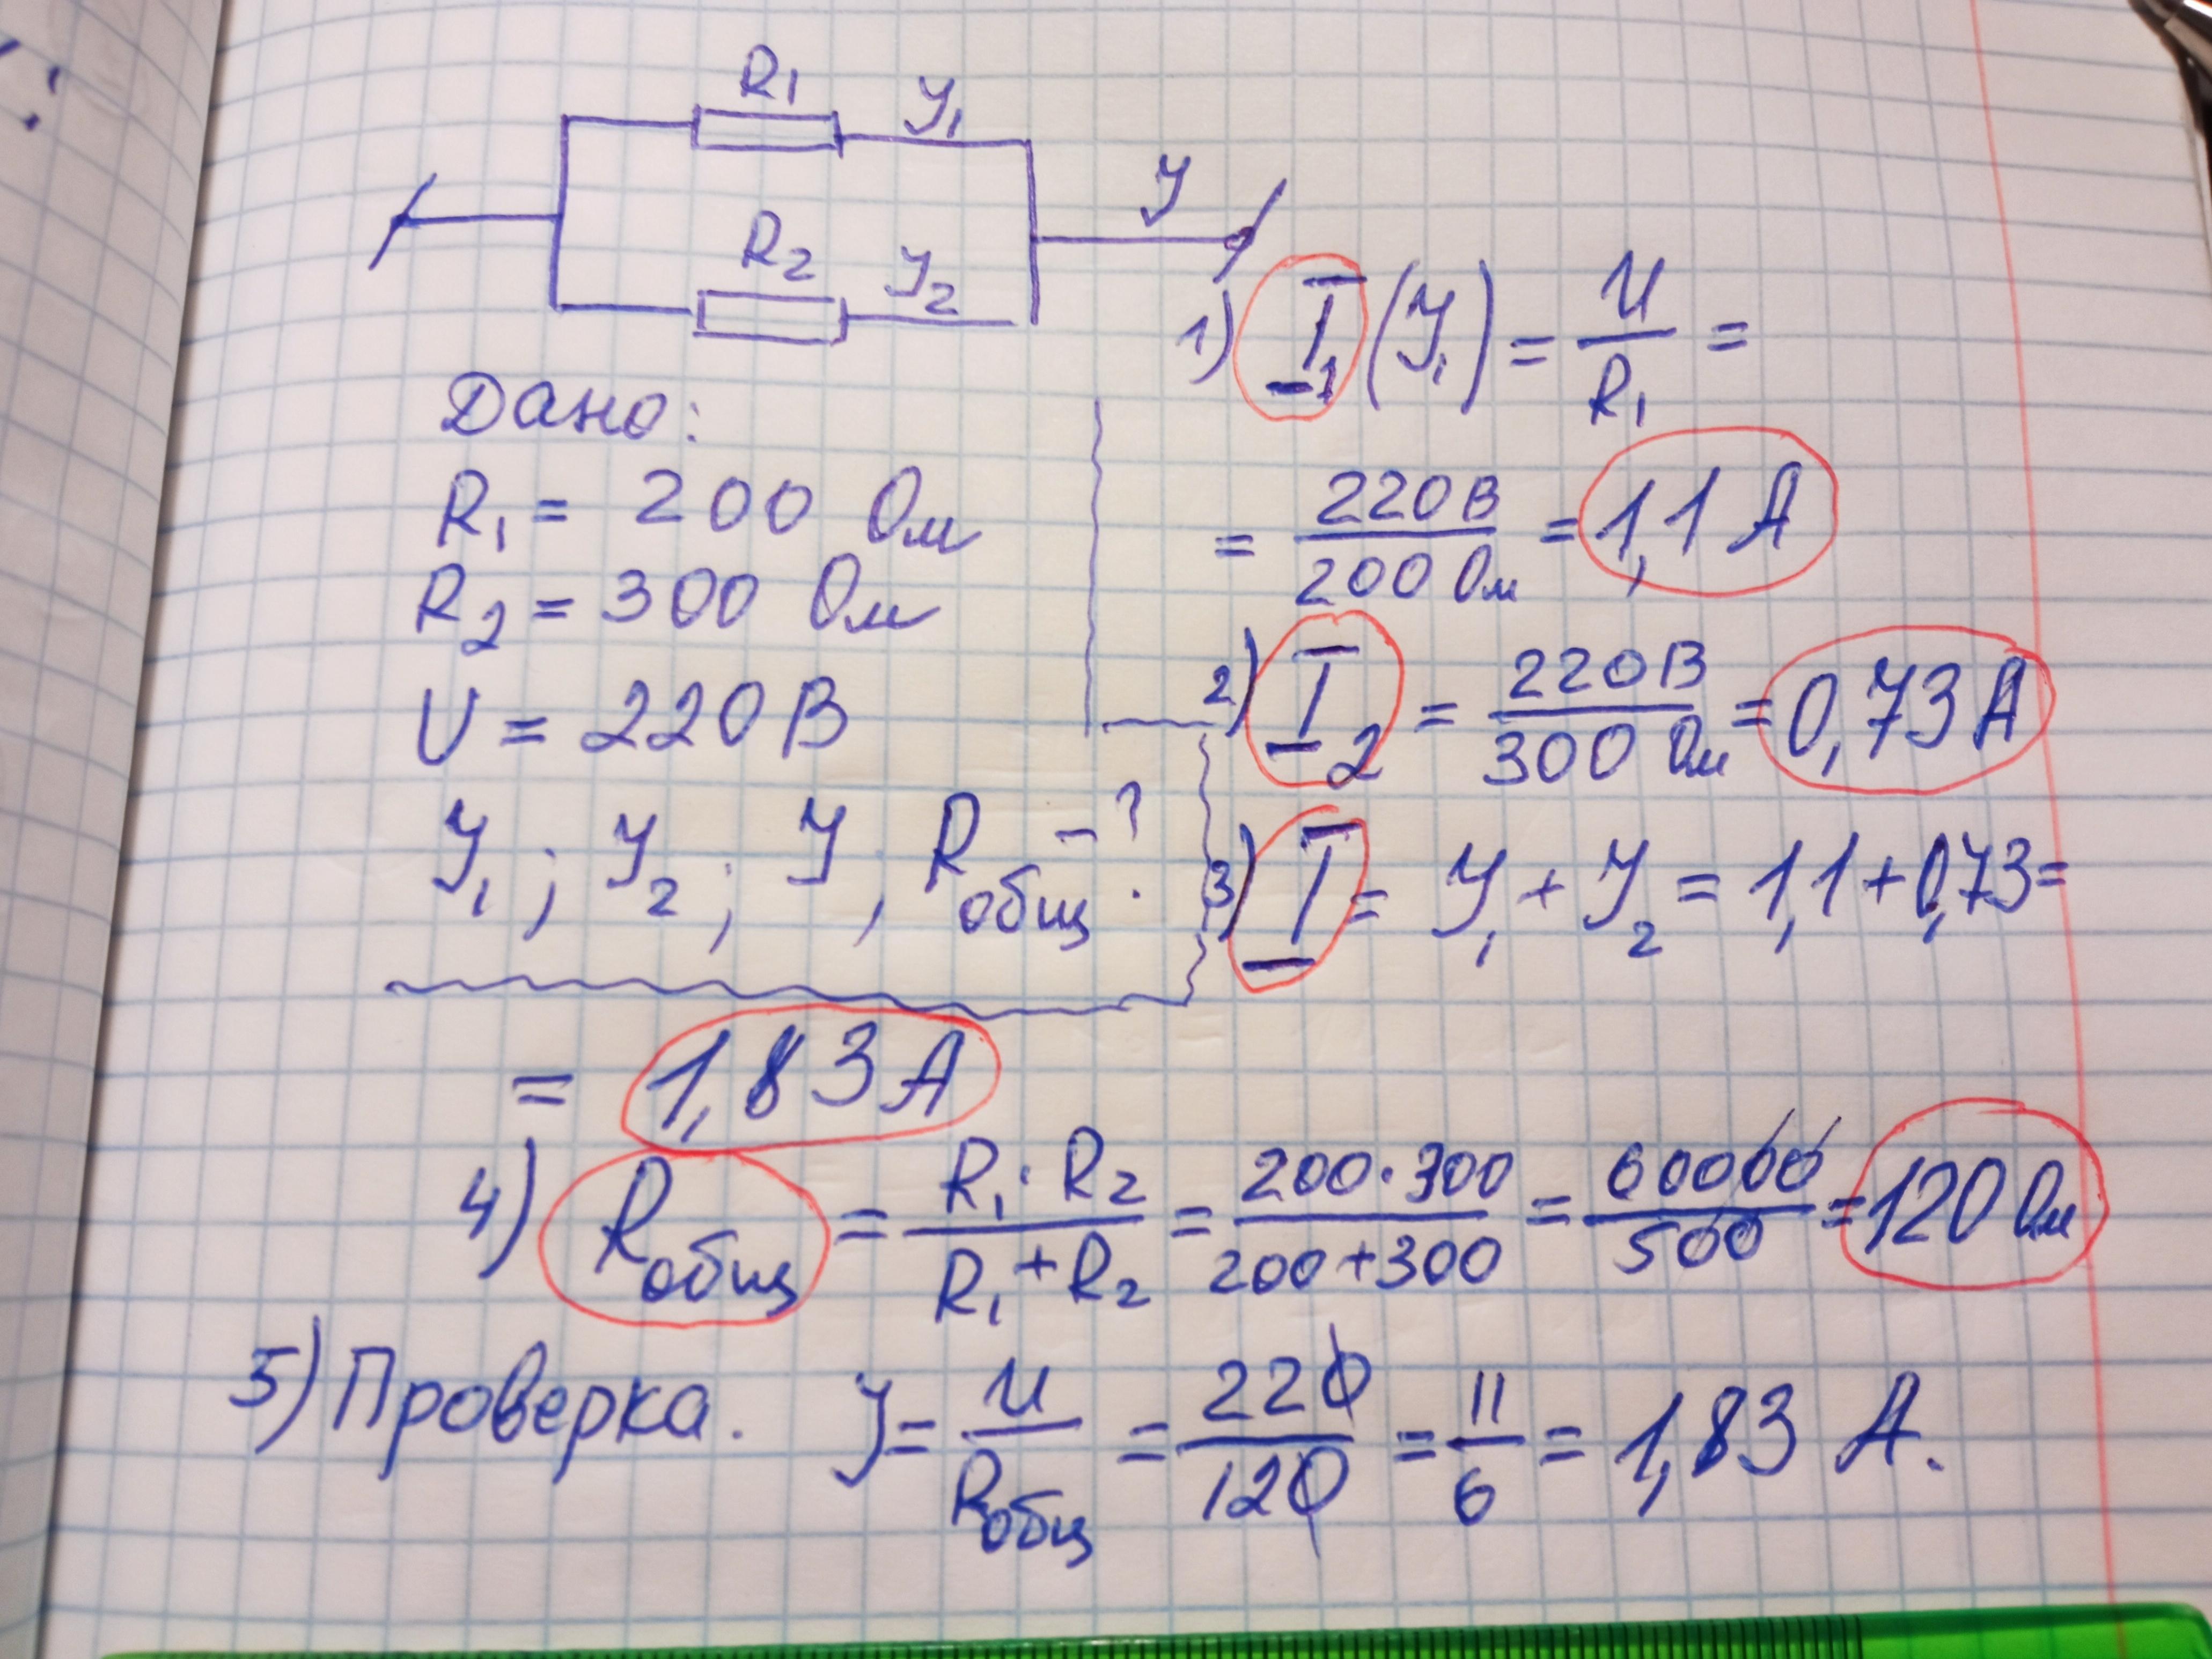 R₁ У₁
У
R₂ У₂
Дано:
R₁ = 200 Ом
R₂ = 300 Ом
U = 220 В
У₁; У₂; У, Rобщ - ?
1) I₁ (У₁) = U/R₁ =
= 220 В/200 Ом = 1,1 А
2) I₂ = 220 В/300 Ом = 0,73 А
3) I = У₁ + У₂ = 1,1 + 0,73 =
= 1,83 А
4) Rобщ = R₁ · R₂/R₁ + R₂ = 200 · 300/200 + 300 = 60000/500 = 120 Ом
5) Проверка. У = U/Rобщ = 220/120 = 11/6 = 1,83 А.